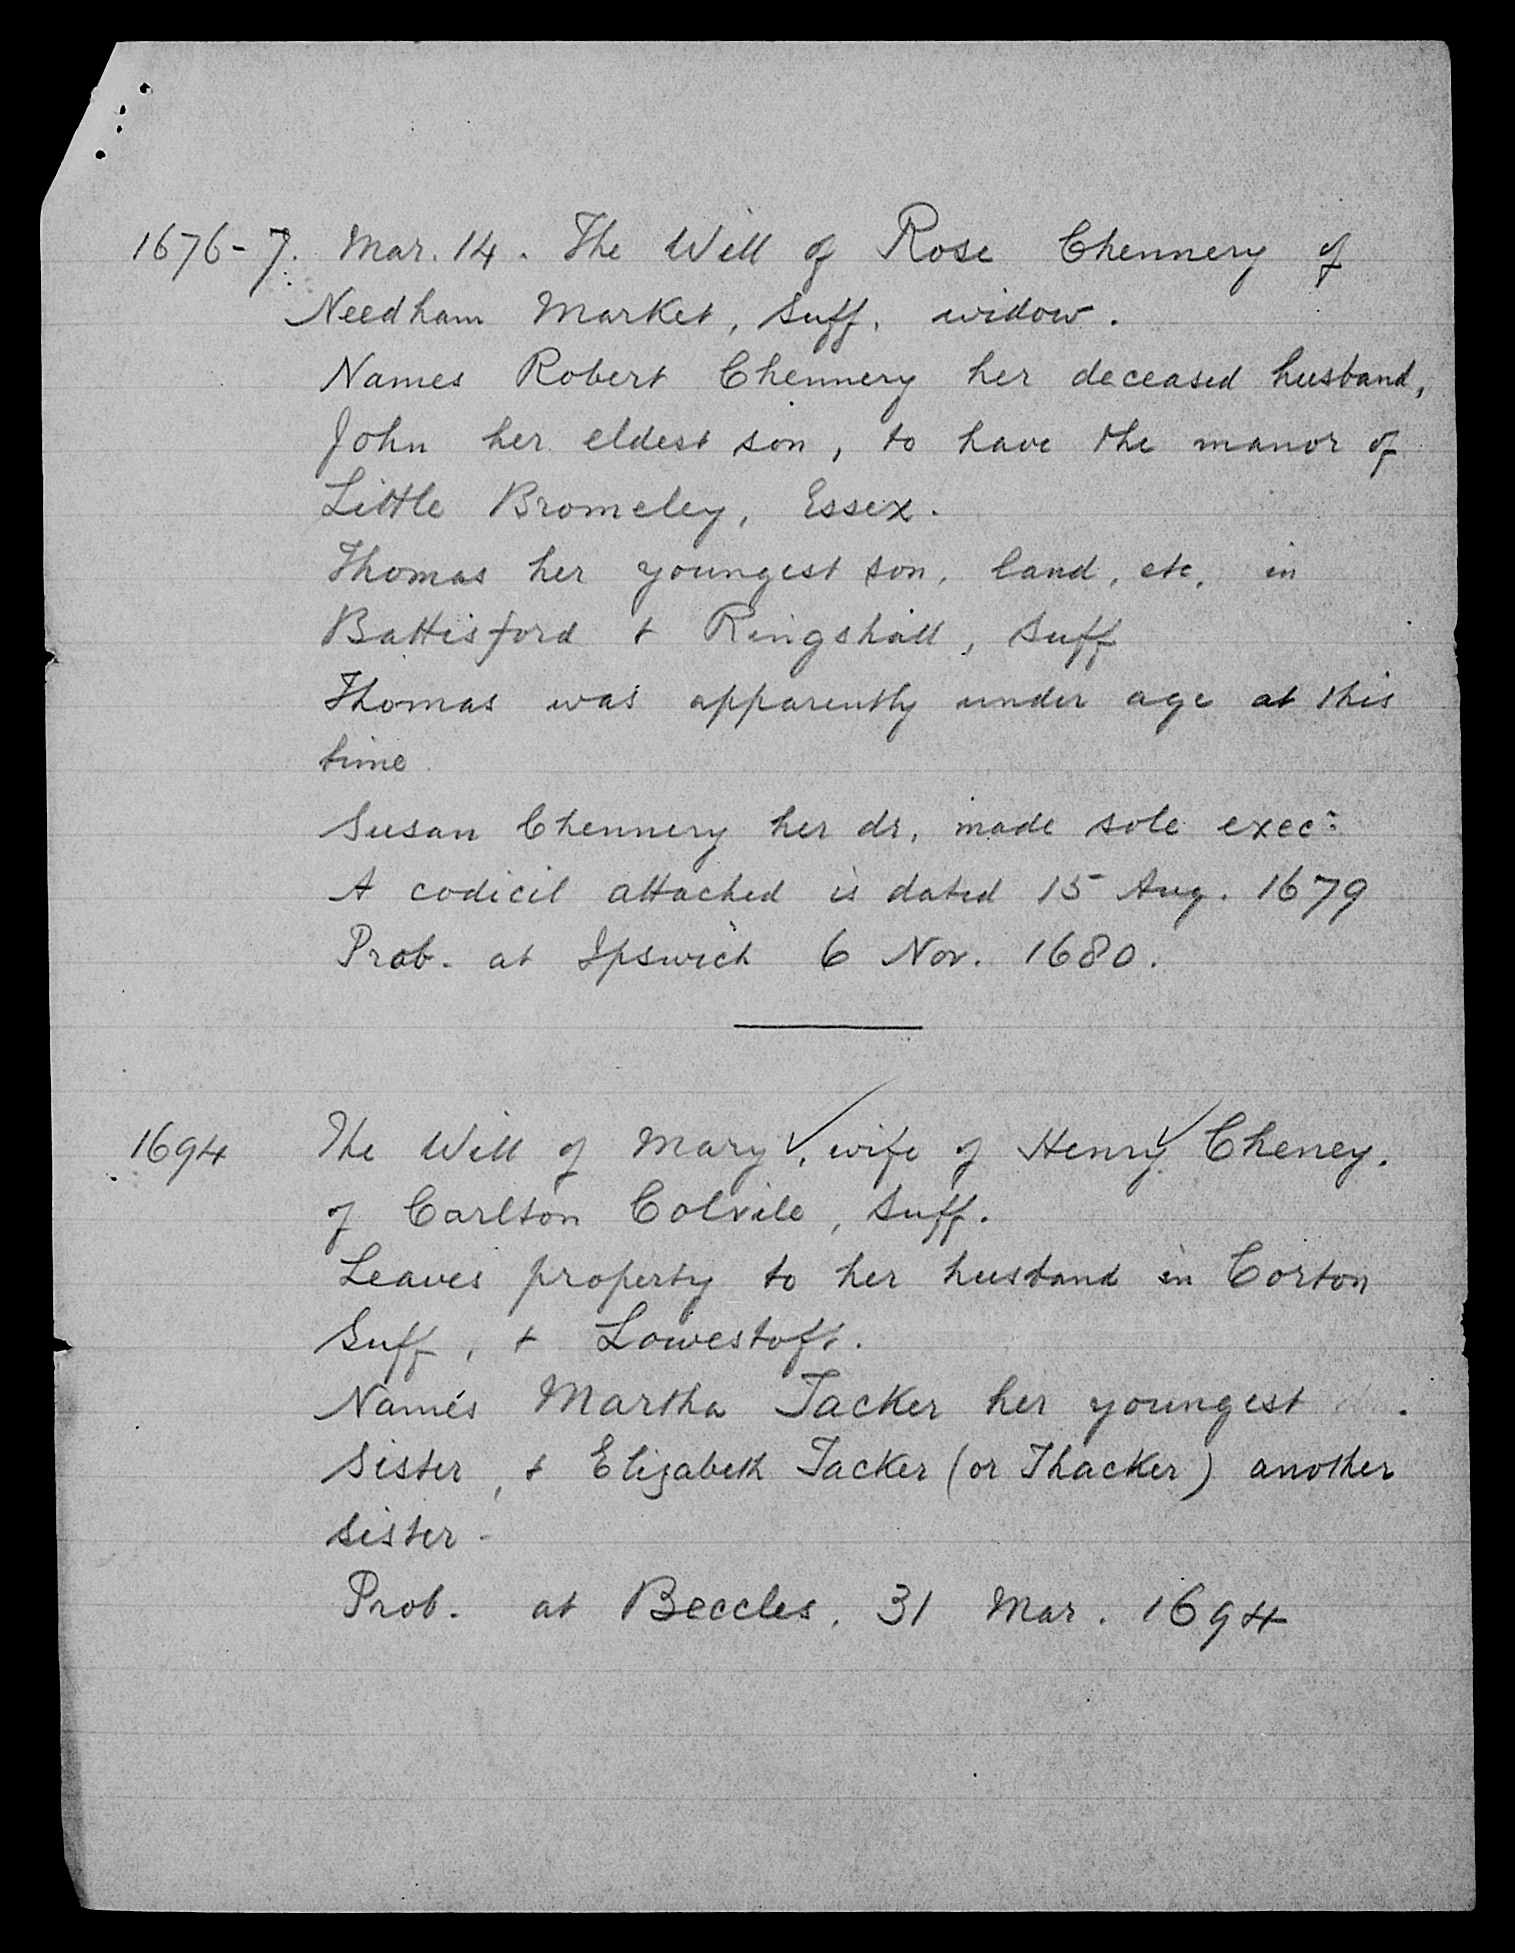 1676-7. Mar. 14. The Will of Rose Chennery of
Needham Market, Suff, widow.
Names Robert Chennery her deceased husband,
John her eldest son, to have the manor of
Little Bromeley, Essex.
Thomas her youngest son, land, etc, in
Battisford & Ringshall, Suff
Thomas was apparently under age at this
time
Susan Chennery her dr, made sole exec:
A codicil attached is dated 15 Aug. 1679
Prob. at Ipswich 6 Nov. 1680.
1694 The Will of Mary ✓, wife of Henry ✓ Cheney.
of Carlton Colvile, Suff.
Leaves property to her husband in Corton
Suff, & Lowestoft.
Names Martha Tacker her youngest
sister, & Elizabeth Tacker (or Thacker) another
sister -
Prob. at Beccles. 31 Mar. 1694